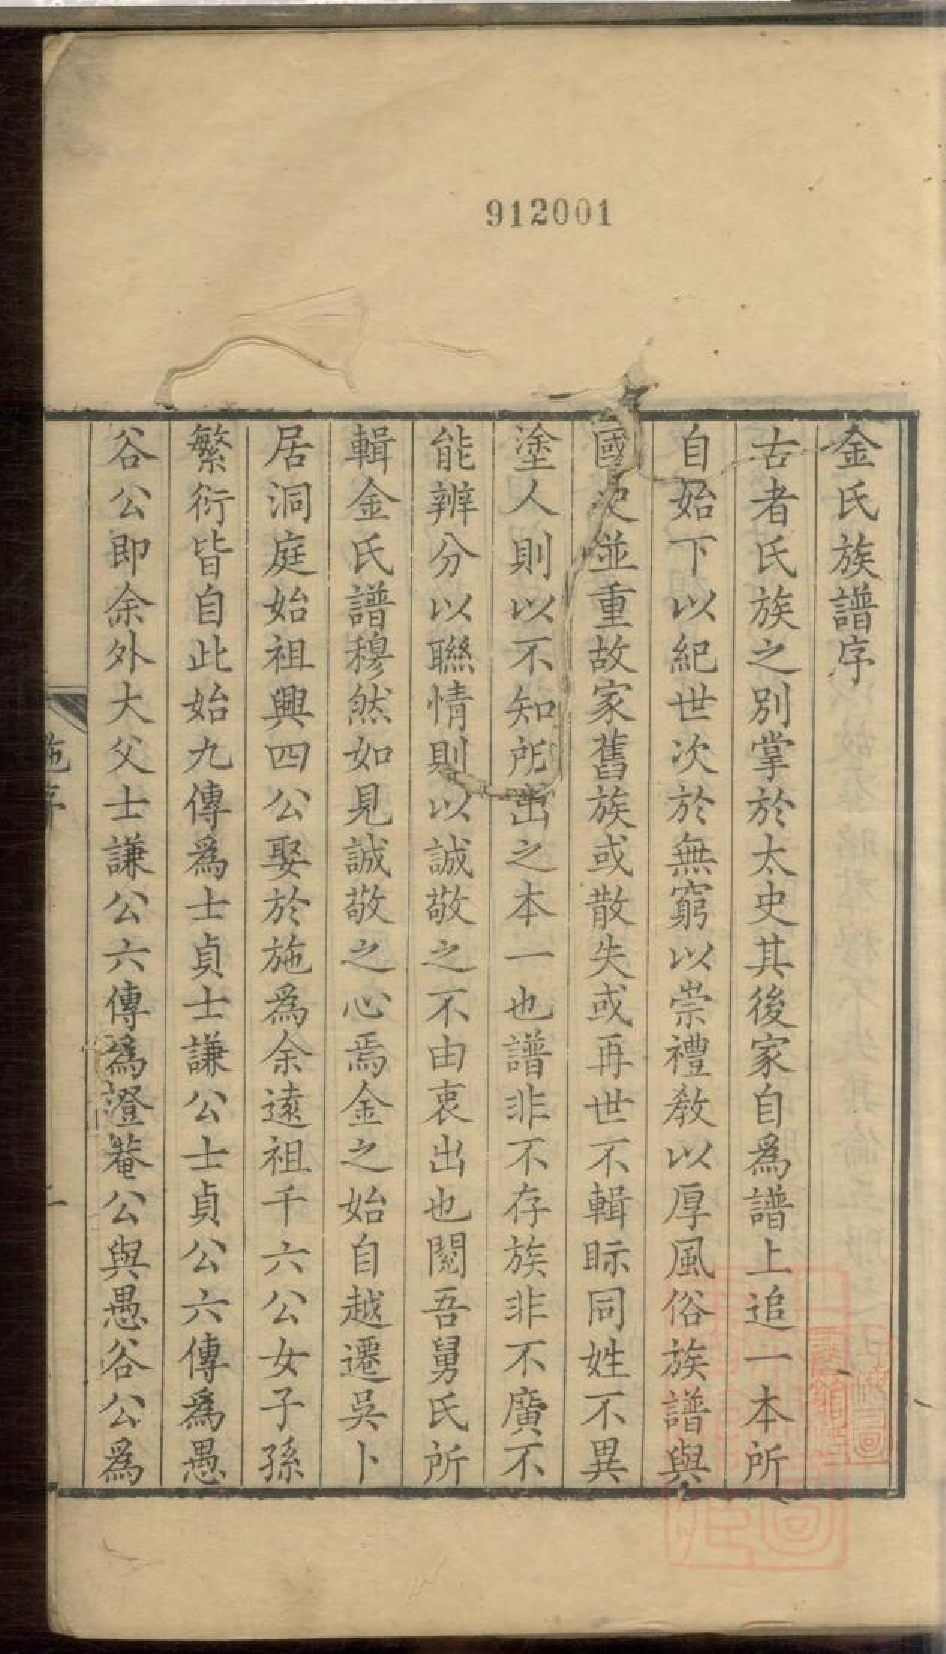 912001
金氏族譜序
古者氏族之別掌於太史其後家自爲譜上追一本所
自始下以紀世次於無窮以崇禮敎以厚風俗族譜與
國史並重故家舊族或散失或再世不輯眎同姓不異
塗人則以不知所出之本一也譜非不存族非不廣不
能辨分以聯情則以誠敬之不由衷出也閱吾舅氏所
輯金氏譜穆然如見誠敬之心焉金之始自越遷吳卜
居洞庭始祖興四公娶於施爲余遠祖千六公女子孫
繁衍皆自此始九傳爲士貞士謙公士貞公六傳爲愚
谷公即余外大父士謙公六傳爲澄菴公與愚谷公爲
施序